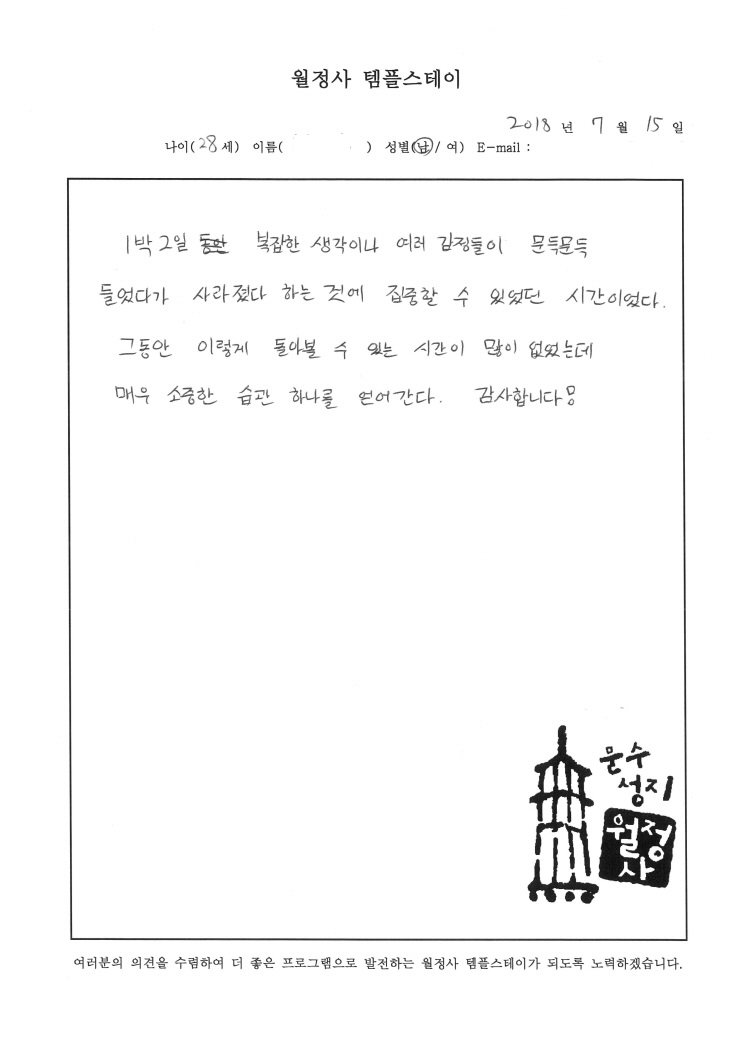 월정사 템플스테이
2018 년 7 월 15 일
나이( 28 세) 이름( ) 성별(남/ 여) E-mail :
1박 2일 동안 복잡한 생각이나 여러 감정들이 문득문득
들었다가 사라졌다 하는 것에 집중할 수 있었던 시간이었다.
그동안 이렇게 돌아볼 수 있는 시간이 많이 없었는데
매우 소중한 습관 하나를 얻어간다. 감사합니다!
문수
성지
월정
사
여러분의 의견을 수렴하여 더 좋은 프로그램으로 발전하는 월정사 템플스테이가 되도록 노력하겠습니다.